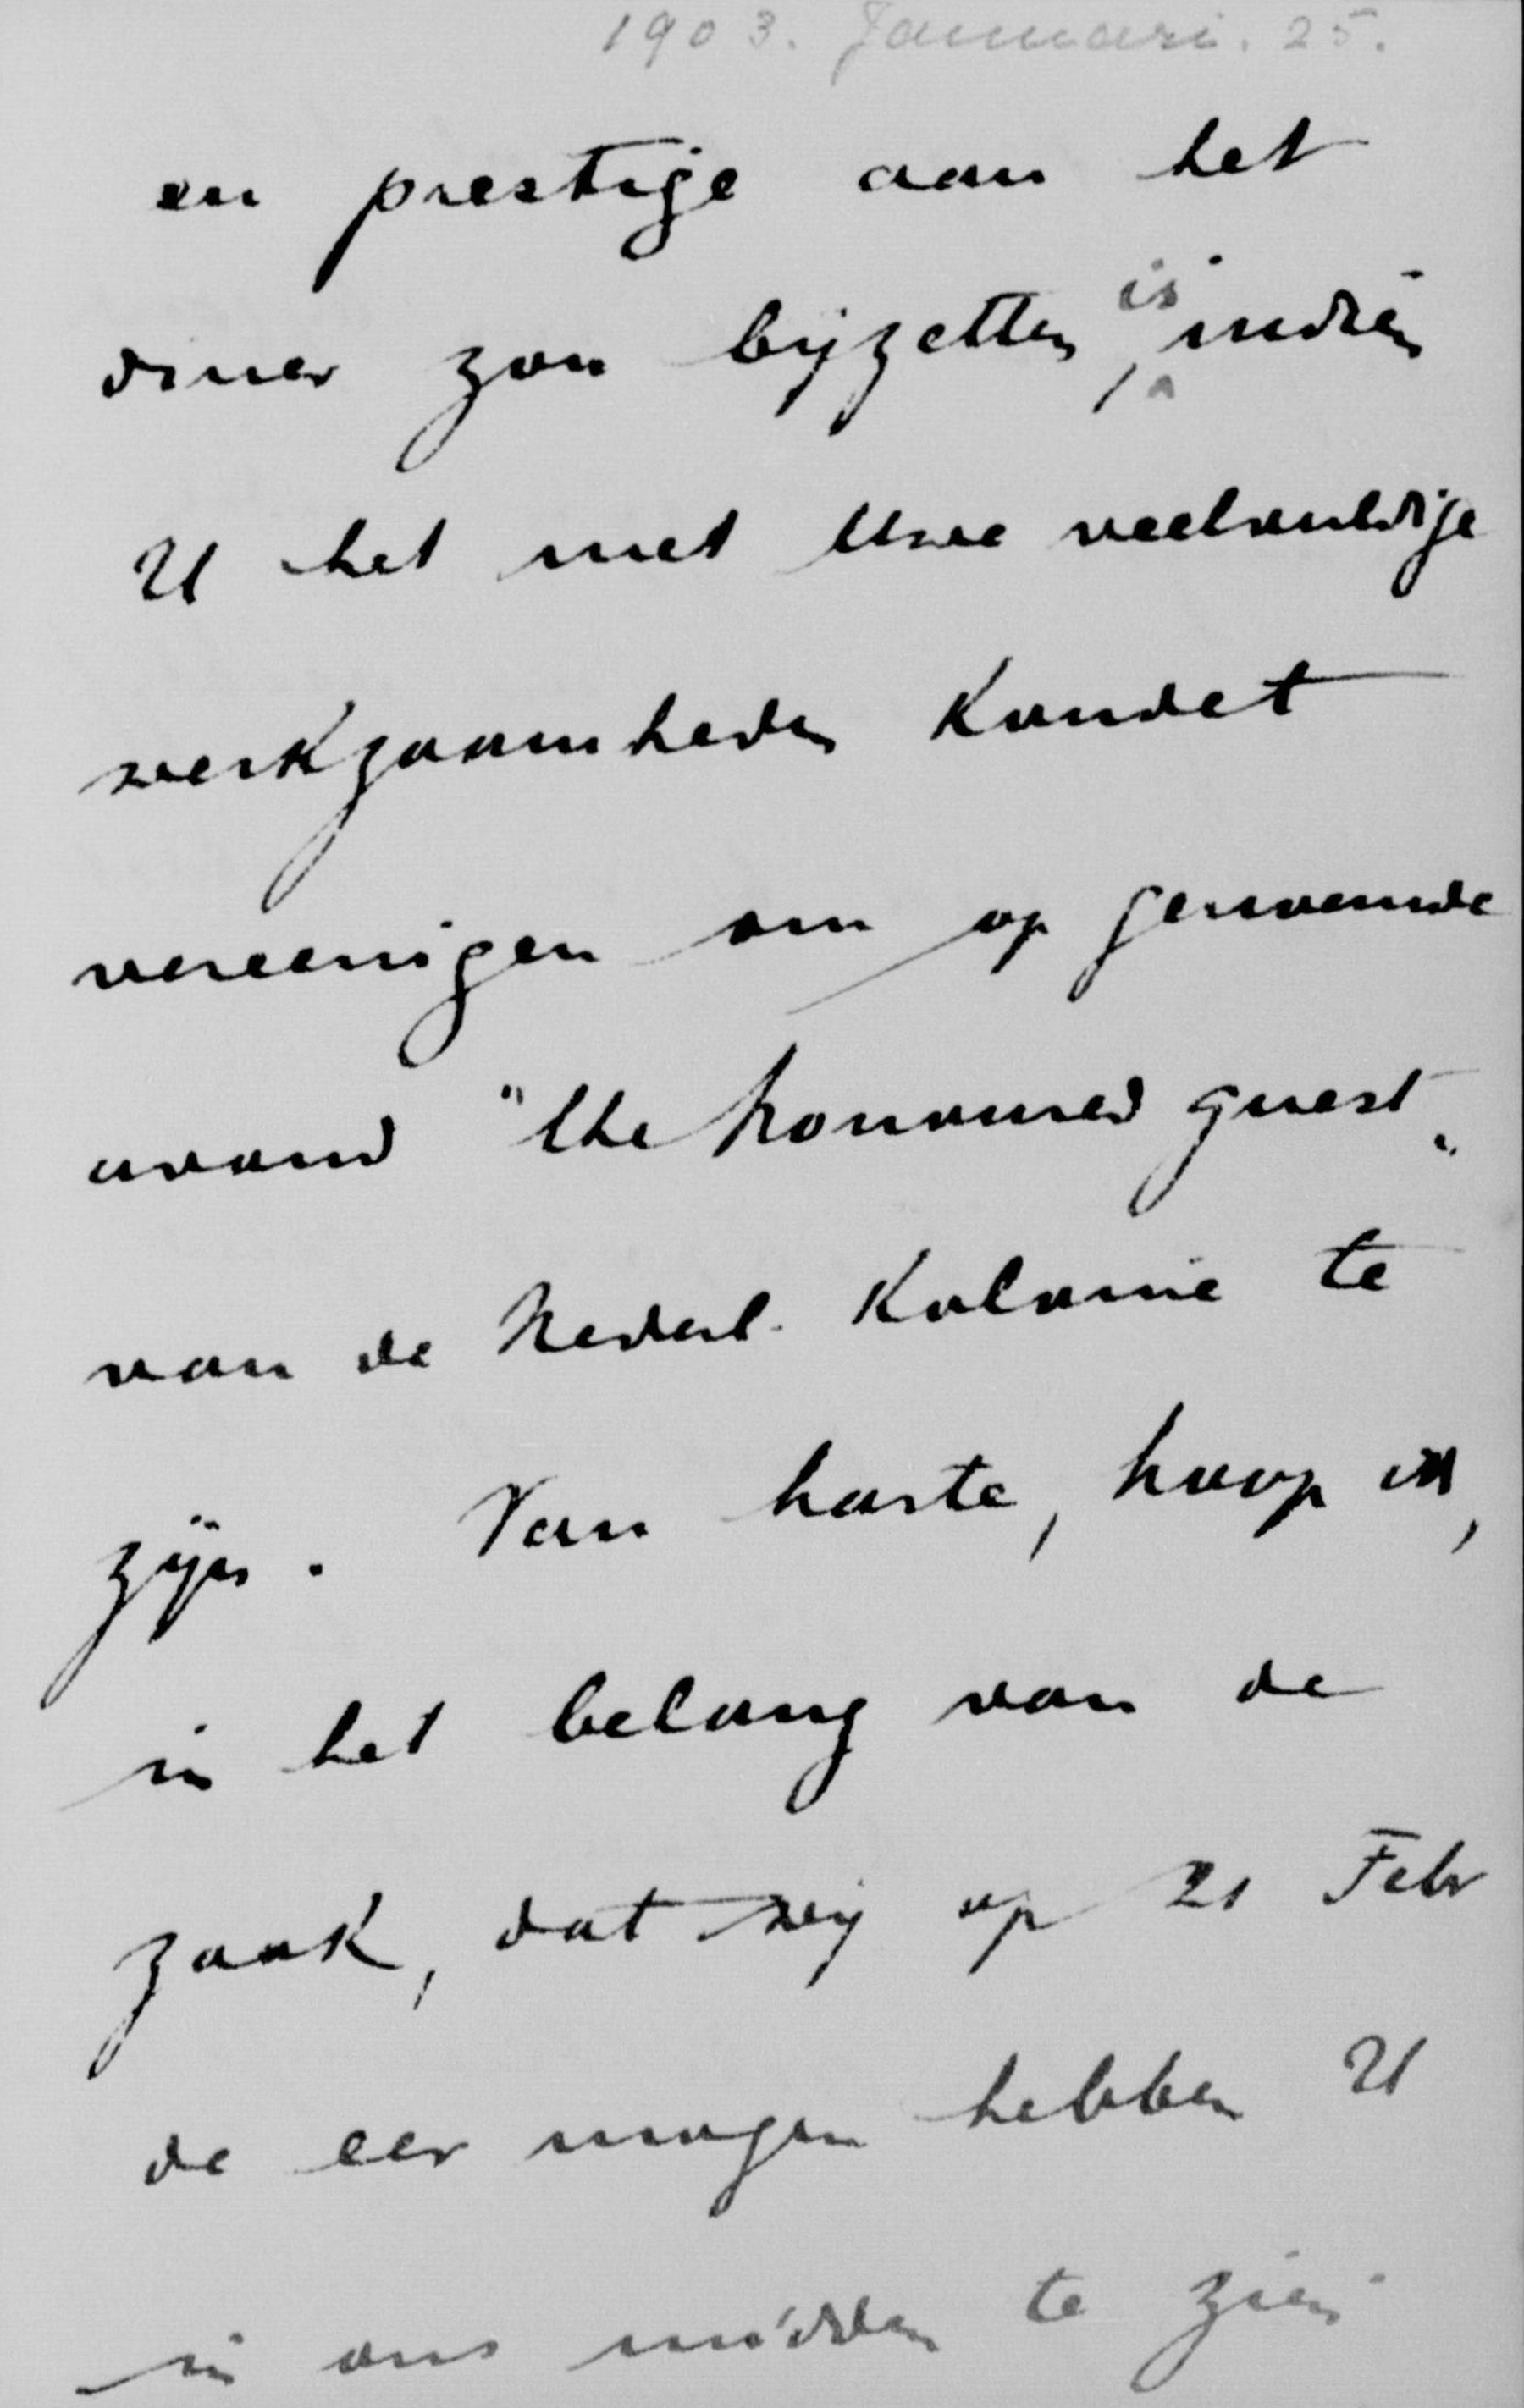 1903. Januari. 25.
en prestige aan het
diner zou bijzetten, is indien
U het met Uwe veelvuldige
werkzaamheden kondet
vereenigen om op genoemde
avond "the honoured guest„
van de Nederl. Kolonie te
zijn. Van harte, hoop ik,
in het belang van de
zaak, dat wij op 21 Febr
de eer mogen hebben U
in ons midden te zien